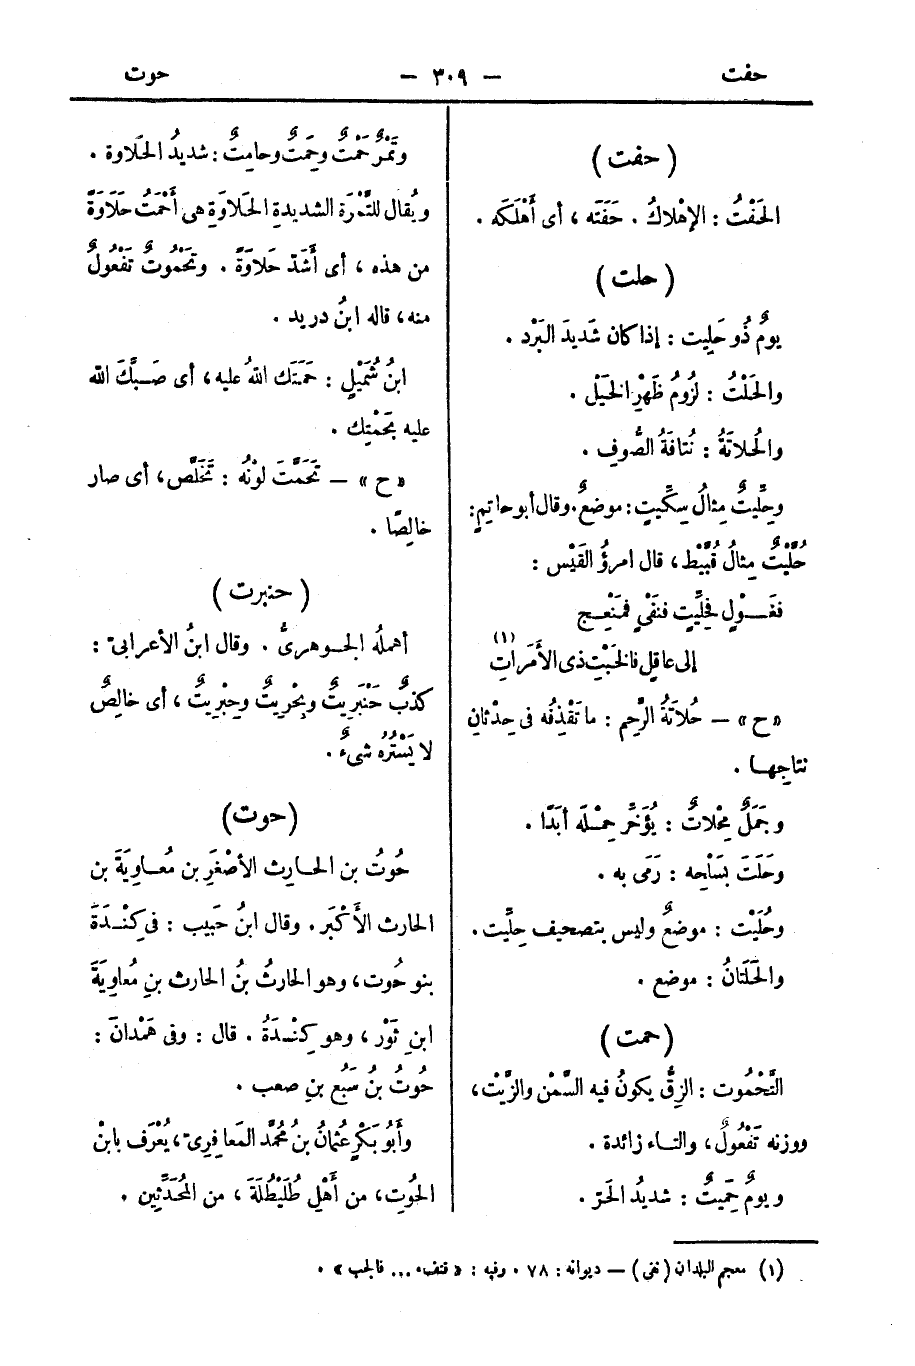 حفت — ٣٠٩ — حوت
( حفت )
الحَفْتُ : الإِهْلاكُ . حَفَتَه ، أى أَهْلَكَه .
( حلت )
يومٌ ذُو حَلِيت : إذا كان شَدِيدَ البَرْد .
والحَلْتُ : لُزُومُ ظَهْرِ الخَيْل .
والحُلاتَةُ : نُتافَةُ الصُّوفِ .
وحِلِّيتٌ مِثالُ سِكِّيتٍ : موضعٌ . وقال أبو حاتِمٍ :
حُلَّيْتٌ مِثالُ قُبَّيْط ، قال امرؤُ القَيْس :
فغَـوْلٍ فحِلِّيتٍ فنَفْىٍ فمَنْعِـج
إلى عاقِلٍ فالخَبْتِ ذى الأَمَراتِ (١)
« ح » — حُلاتَةُ الرَّحِم : ما تَقْذِفُه فى حِدْثانِ
نتاجِهـا .
وجَمَلٌ مِحْلاتٌ : يُؤَخِّر حِمْـلَه أبَدًا .
وحَلَتَ بسَلْحِه : رَمَى به .
وحُلَيْت : موضعٌ وليس بتصحيف حِلِّيت .
والحَلَتَانُ : موضع .
( حمت )
التَّحْمُوت : الزِقُّ يكونُ فيه السَّمْن والزَّيْت ،
ووزنه تَفْعُولٌ ، والتـاء زائدة .
ويومٌ حَمِيتٌ : شديدُ الحَرّ .
وتَمْرٌ حَمْتٌ وحَمِتٌ وحامِتٌ : شديدُ الحَلاوة .
ويُقال للتَّمْرَة الشديدةِ الحَلاوَةِ هى أَحْمَتُ حَلَاوَةً
من هذه ، أى أَشَدّ حَلاوَةً . وتَحْمُوتٌ تَفْعُولٌ
منه ، قاله ابنُ دريد .
ابنُ شُمَيْلٍ : حَمَتَك اللهُ عليه ، أى صَـبَّكَ الله
عليه بحَمْتِك .
« ح » — تَحَمَّتَ لوْنُه : تَخَلَّص ، أى صار
خالِصًا .
( حنبرت )
أهملُه الجـوهرىُّ . وقال ابنُ الأعرابىّ :
كذبٌ حَنْبَرِيتٌ وبِحْرِيتٌ وحِبْرِيتٌ ، أى خالِصٌ
لا يَسْتُرُه شىءٌ .
( حوت )
حُوتُ بن الحـارِث الأصْغَرِ بن مُعـاوِيَةَ بن
الحارث الأَكْبَر . وقال ابنُ حَبيب : فى كِنْـدَةَ
بنو حُوت ، وهو الحارثُ بنُ الحارث بنِ مُعاوِيَةَ
ابنِ ثَوْر ، وهو كِنْـدَةُ . قال : وفى هَمْدانَ :
حُوتُ بنُ سَبُع بنِ صعب .
وأَبُو بَكْرٍ عُثمانُ بنُ مُحمَّد المَعافِرىّ ، يُعْرَف بابنْ
الحُوتِ ، من أَهْلِ طُلَيْطُلَةَ ، من المُحَدِّثِين .
(١) معجم البلدان ( نفى ) — ديوانه : ٧٨ . وفيه : « فنفء ... فالجب » .